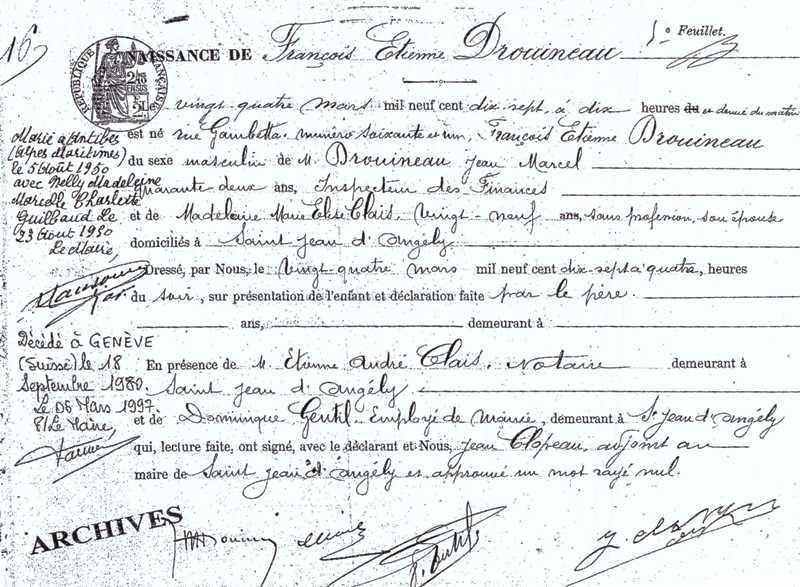 16
NAISSANCE DE François Etienne Drouineau
5º Feuillet.
RÉPUBLIQUE FRANÇAISE
Le vingt-quatre mars mil neuf cent dix-sept, à dix heures du et demie du matin
est né rue Gambetta, numéro soixante et un, François Etienne Drouineau
du sexe masculin de M. Drouineau Jean Marcel
quarante-deux ans, Inspecteur des Finances
et de Madeleine Marie Elise Clais, vingt-neuf ans, sans profession, son épouse
domiciliés à Saint Jean d'Angély
Dressé, par Nous, le vingt-quatre mars mil neuf cent dix-sept à quatre, heures
du soir, sur présentation de l'enfant et déclaration faite par le père.
ans, demeurant à
En présence de M. Etienne André Clais, Notaire demeurant à
Saint Jean d'Angély
et de Dominique Gentil Employé de Mairie, demeurant à St Jean d'Angély
qui, lecture faite, ont signé, avec le déclarant et Nous, Jean Clopeau, adjoint au
maire de Saint Jean d'Angély et approuvé un mot rayé nul.
Marié à Antibes
(Alpes Maritimes)
le 5 Août 1950
avec Nelly Madeleine
Marcelle Charlette
Guilbaud Le
23 Août 1950
Le Maire,
Décédé à GENÈVE
(Suisse) le 18
Septembre 1989.
Le 06 Mars 1997.
P/Le Maire,
ARCHIVES